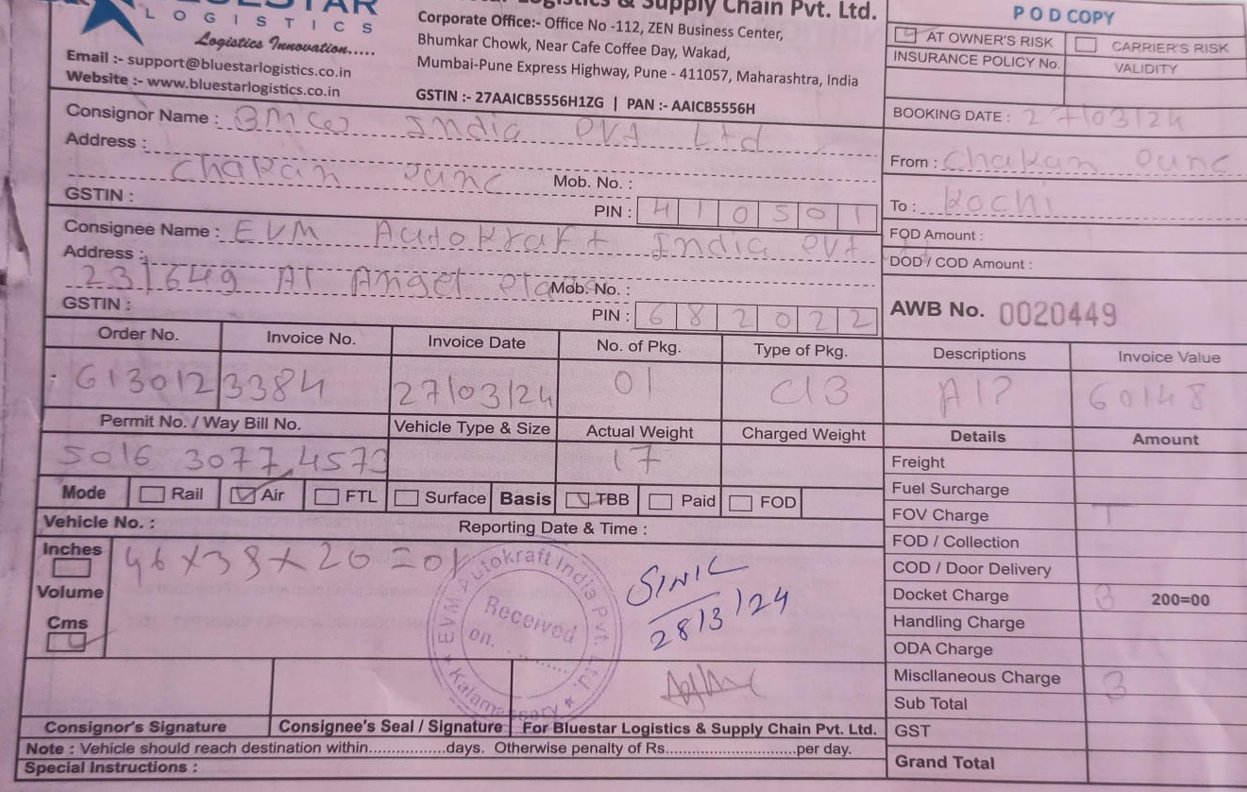 LOGISTICS
Logistics Innovation.....
Email :- support@bluestarlogistics.co.in
Website :- www.bluestarlogistics.co.in
& Supply Chain Pvt. Ltd.
Corporate Office:- Office No -112, ZEN Business Center,
Bhumkar Chowk, Near Cafe Coffee Day, Wakad,
Mumbai-Pune Express Highway, Pune - 411057, Maharashtra, India
GSTIN :- 27AAICB5556H1ZG | PAN :- AAICB5556H
POD COPY
AT OWNER'S RISK CARRIER'S RISK
INSURANCE POLICY No. VALIDITY
BOOKING DATE : 27/03/24
Consignor Name : BMW India PVt Ltd
Address :
Chakan Pune Mob. No. :
GSTIN : PIN : 410501
From : Chakan Pune
To : Kochi
Consignee Name : EVM Autokraft India PVt
Address :
23/649 A1 Angel Plaza Mob. No. :
GSTIN : PIN : 682022
FOD Amount :
DOD / COD Amount :
AWB No. 0020449
Order No. Invoice No. Invoice Date No. of Pkg. Type of Pkg. Descriptions Invoice Value
613012 3384 27/03/24 01 C13 60148
Permit No. / Way Bill No. Vehicle Type & Size Actual Weight Charged Weight Details Amount
5016 3077 4573 17
Freight
Mode Rail Air FTL Surface Basis TBB Paid FOD
Fuel Surcharge
Vehicle No. : Reporting Date & Time :
FOV Charge
FOD / Collection
COD / Door Delivery
Docket Charge 200=00
Handling Charge
ODA Charge
Miscllaneous Charge
Sub Total
GST
Grand Total
Inches
46x38x20=01
Volume
Cms
EVM Autokraft India Pvt. Ltd.
Received
on.
Kalamassery
28/3/24
Consignor's Signature Consignee's Seal / Signature For Bluestar Logistics & Supply Chain Pvt. Ltd.
Note : Vehicle should reach destination within.................days. Otherwise penalty of Rs............................per day.
Special Instructions :